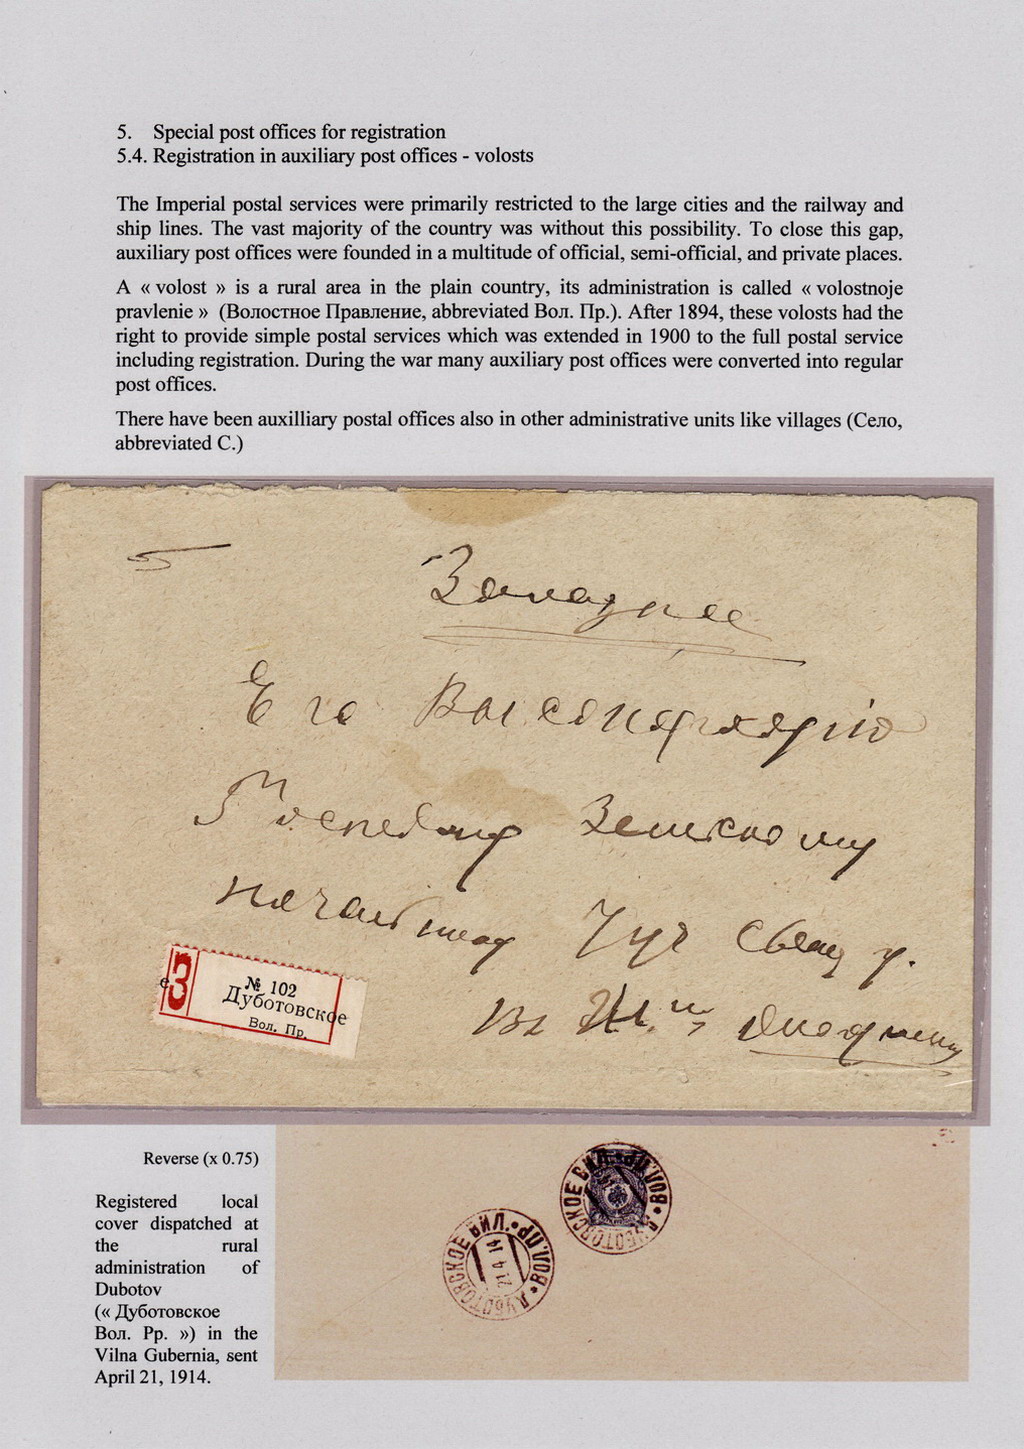 5. Special post offices for registration
5.4. Registration in auxiliary post offices - volosts
The Imperial postal services were primarily restricted to the large cities and the railway and
ship lines. The vast majority of the country was without this possibility. To close this gap,
auxiliary post offices were founded in a multitude of official, semi-official, and private places.
A « volost » is a rural area in the plain country, its administration is called « volostnoje
pravlenie » (Волостное Правление, abbreviated Вол. Пр.). After 1894, these volosts had the
right to provide simple postal services which was extended in 1900 to the full postal service
including registration. During the war many auxiliary post offices were converted into regular
post offices.
There have been auxilliary postal offices also in other administrative units like villages (Село,
abbreviated С.)
Заказное
Его Высокородію
Господину Земскому
начальнику
З
№ 102
Дуботовское
Вол. Пр.
Reverse (x 0.75)
Registered local
cover dispatched at
the rural
administration of
Dubotov
(« Дуботовское
Вол. Pp. ») in the
Vilna Gubernia, sent
April 21, 1914.
ДУБОТОВСКОЕ ВОЛ.ПР.
ДУБОТОВСКОЕ ВИЛ. ВОЛ.ПР.
21 4 14